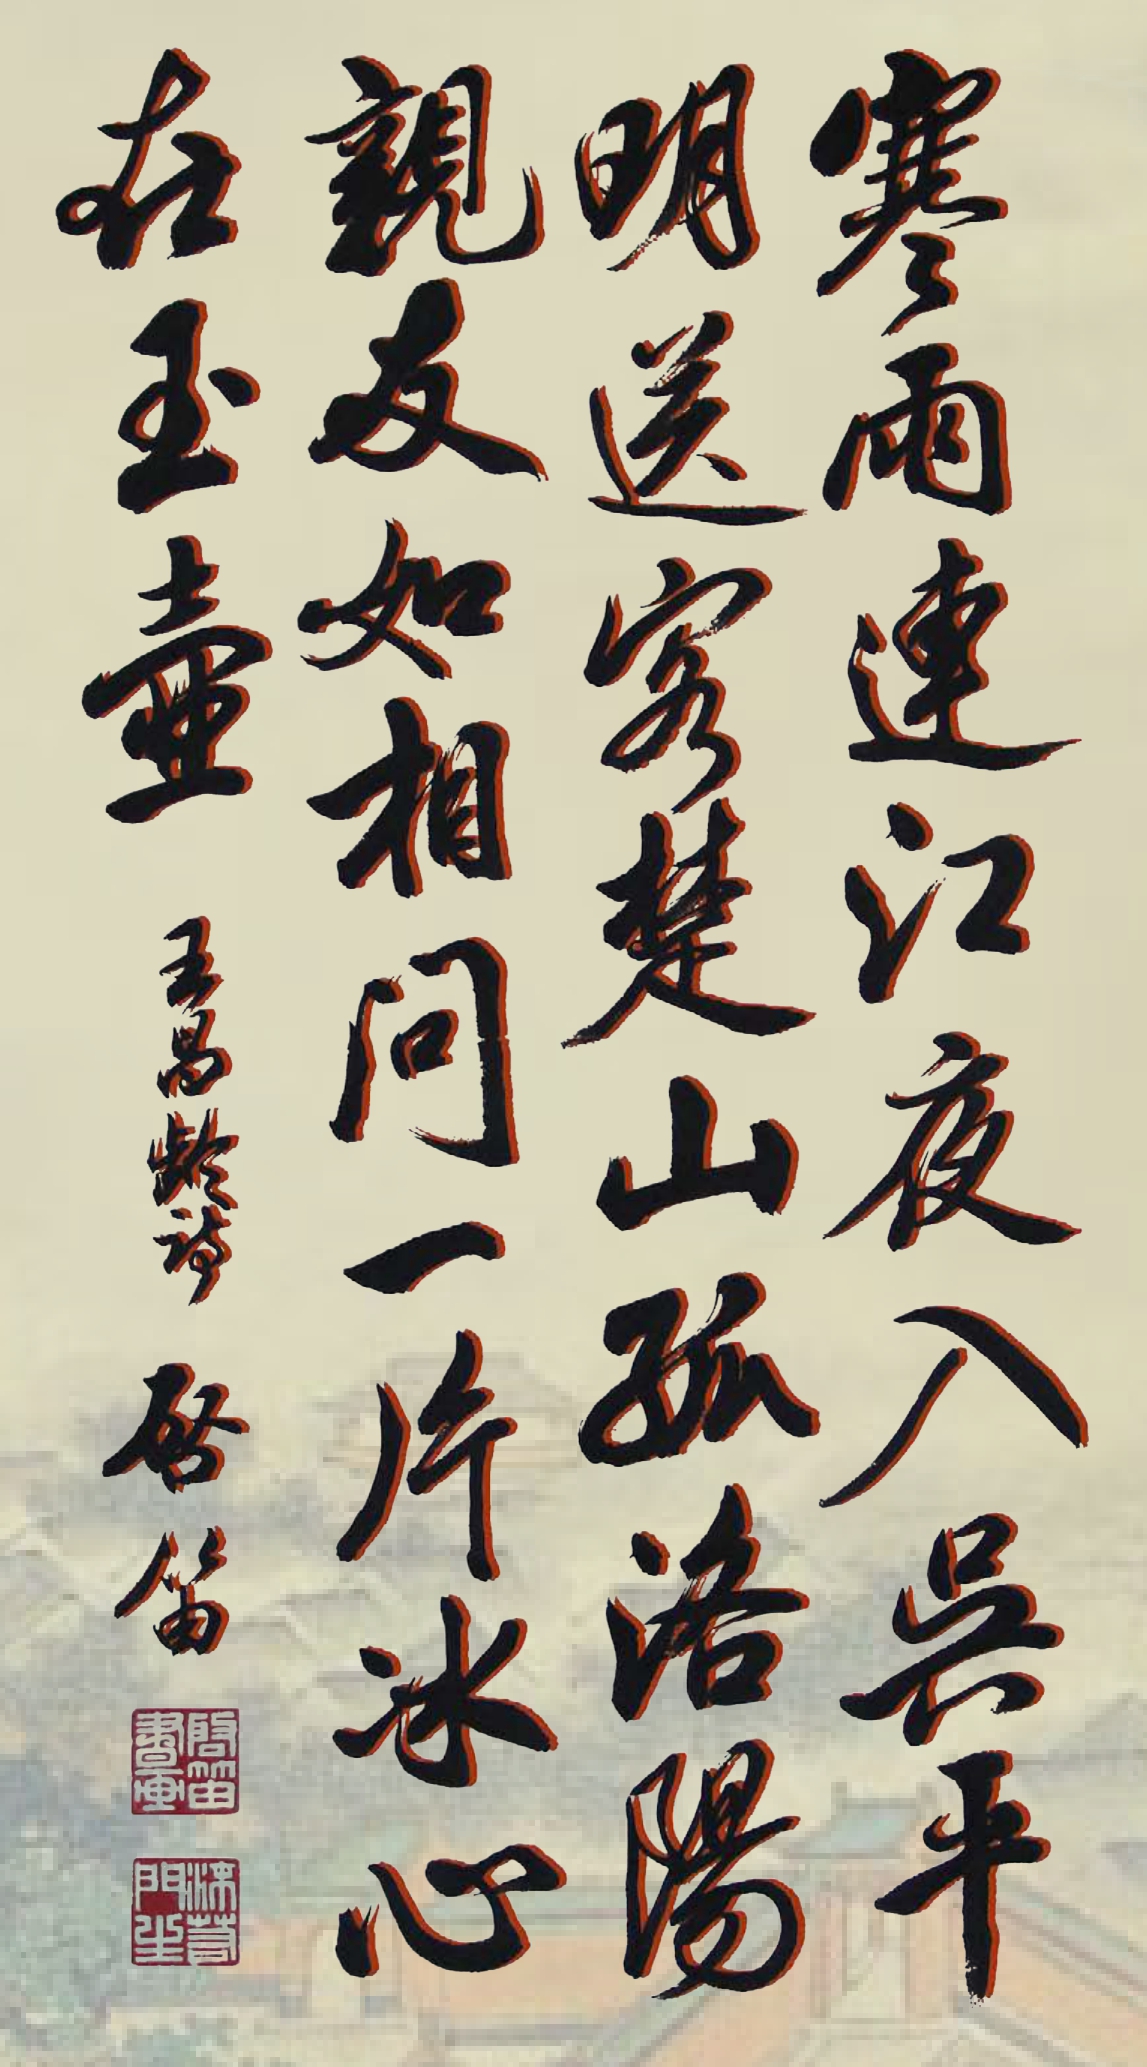 寒雨連江夜入吳平
明送客楚山孤洛陽
親友如相问一片冰心
在玉壺
王昌齡詩
啓笛
啓笛書画
門生